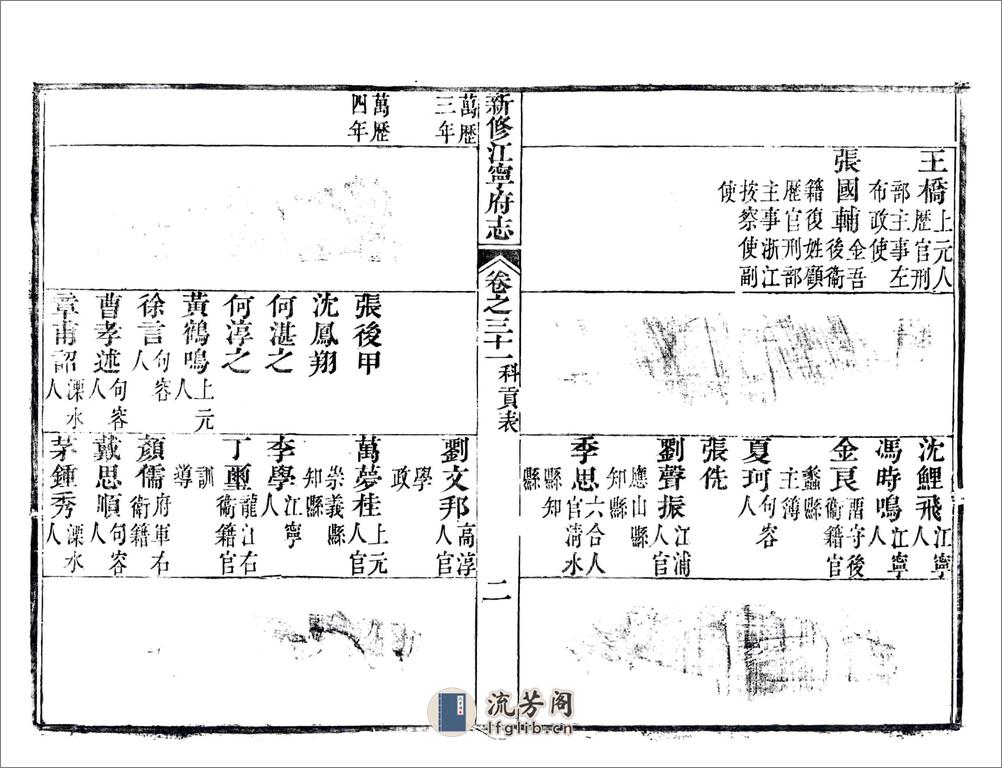 王橋上元人歷官刑部主事左布政使
張國輔金吾後衞籍復姓顧歷官刑部主事浙江按察使副使
沈鯉飛江寧人
馮時鳴江寧人
金良畱守後衞籍官蠡縣主簿
夏珂句容人
張侁
劉聲振江浦人官應山縣知縣
季思六合人官清水縣知縣
新修江寧府志 卷之三十一 科貢表 二
萬歷三年
萬歷四年
張後甲
沈鳳翔
何湛之
何淳之
黃鶴鳴上元人
徐言句容人
曹孝述句容人
章甫詔溧水人
劉文邦高淳人官學政
萬夢桂上元人官崇義縣知縣
李學江寧人
丁璽龍江右衞籍官訓導
顏儒府軍右衞籍
戴思順句容人
茅鍾秀溧水人
流芳阁
lfglib.cn